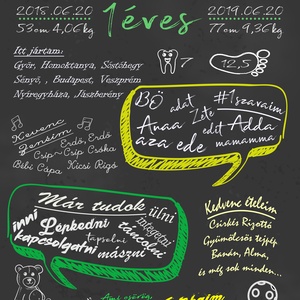 2018.06.20 1 éves 2019.06.20
53cm 4,06kg 77cm 9,36kg
Itt jártam:
Győr, Homoktanya, Sóstóhegy
Sényő, , Budapest, Veszprém
Nyíregyháza, Jászberény
7
12,5
Kedvenc
Zenéim
Erdő, Erdő
Csip-Csip Csóka
Bébi Cápa Kicsi Rigó
BÖ adat #1szavaim
Anaa Zete edit Adda
aza ede mamamma
Már tudok ülni
inni Lépkedni integetni
tapsolni táncolni
kapcsolgatni mászni
Kedvenc ételeim
Csirkés Rizottó
Gyümölcsös tejpép
Banán, Alma,
és még sok minden...